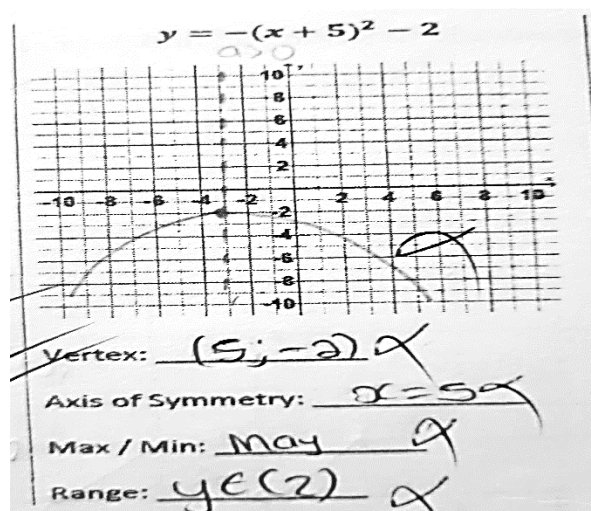 y = -(x + 5)² - 2
a > 0
10
8
6
4
2
-10 -8 -6 -4 -2 2 4 6 8 10
-2
-4
-6
-8
-10
Vertex: (5;-2)
Axis of Symmetry: x=5
Max / Min: May
Range: y∈(2)